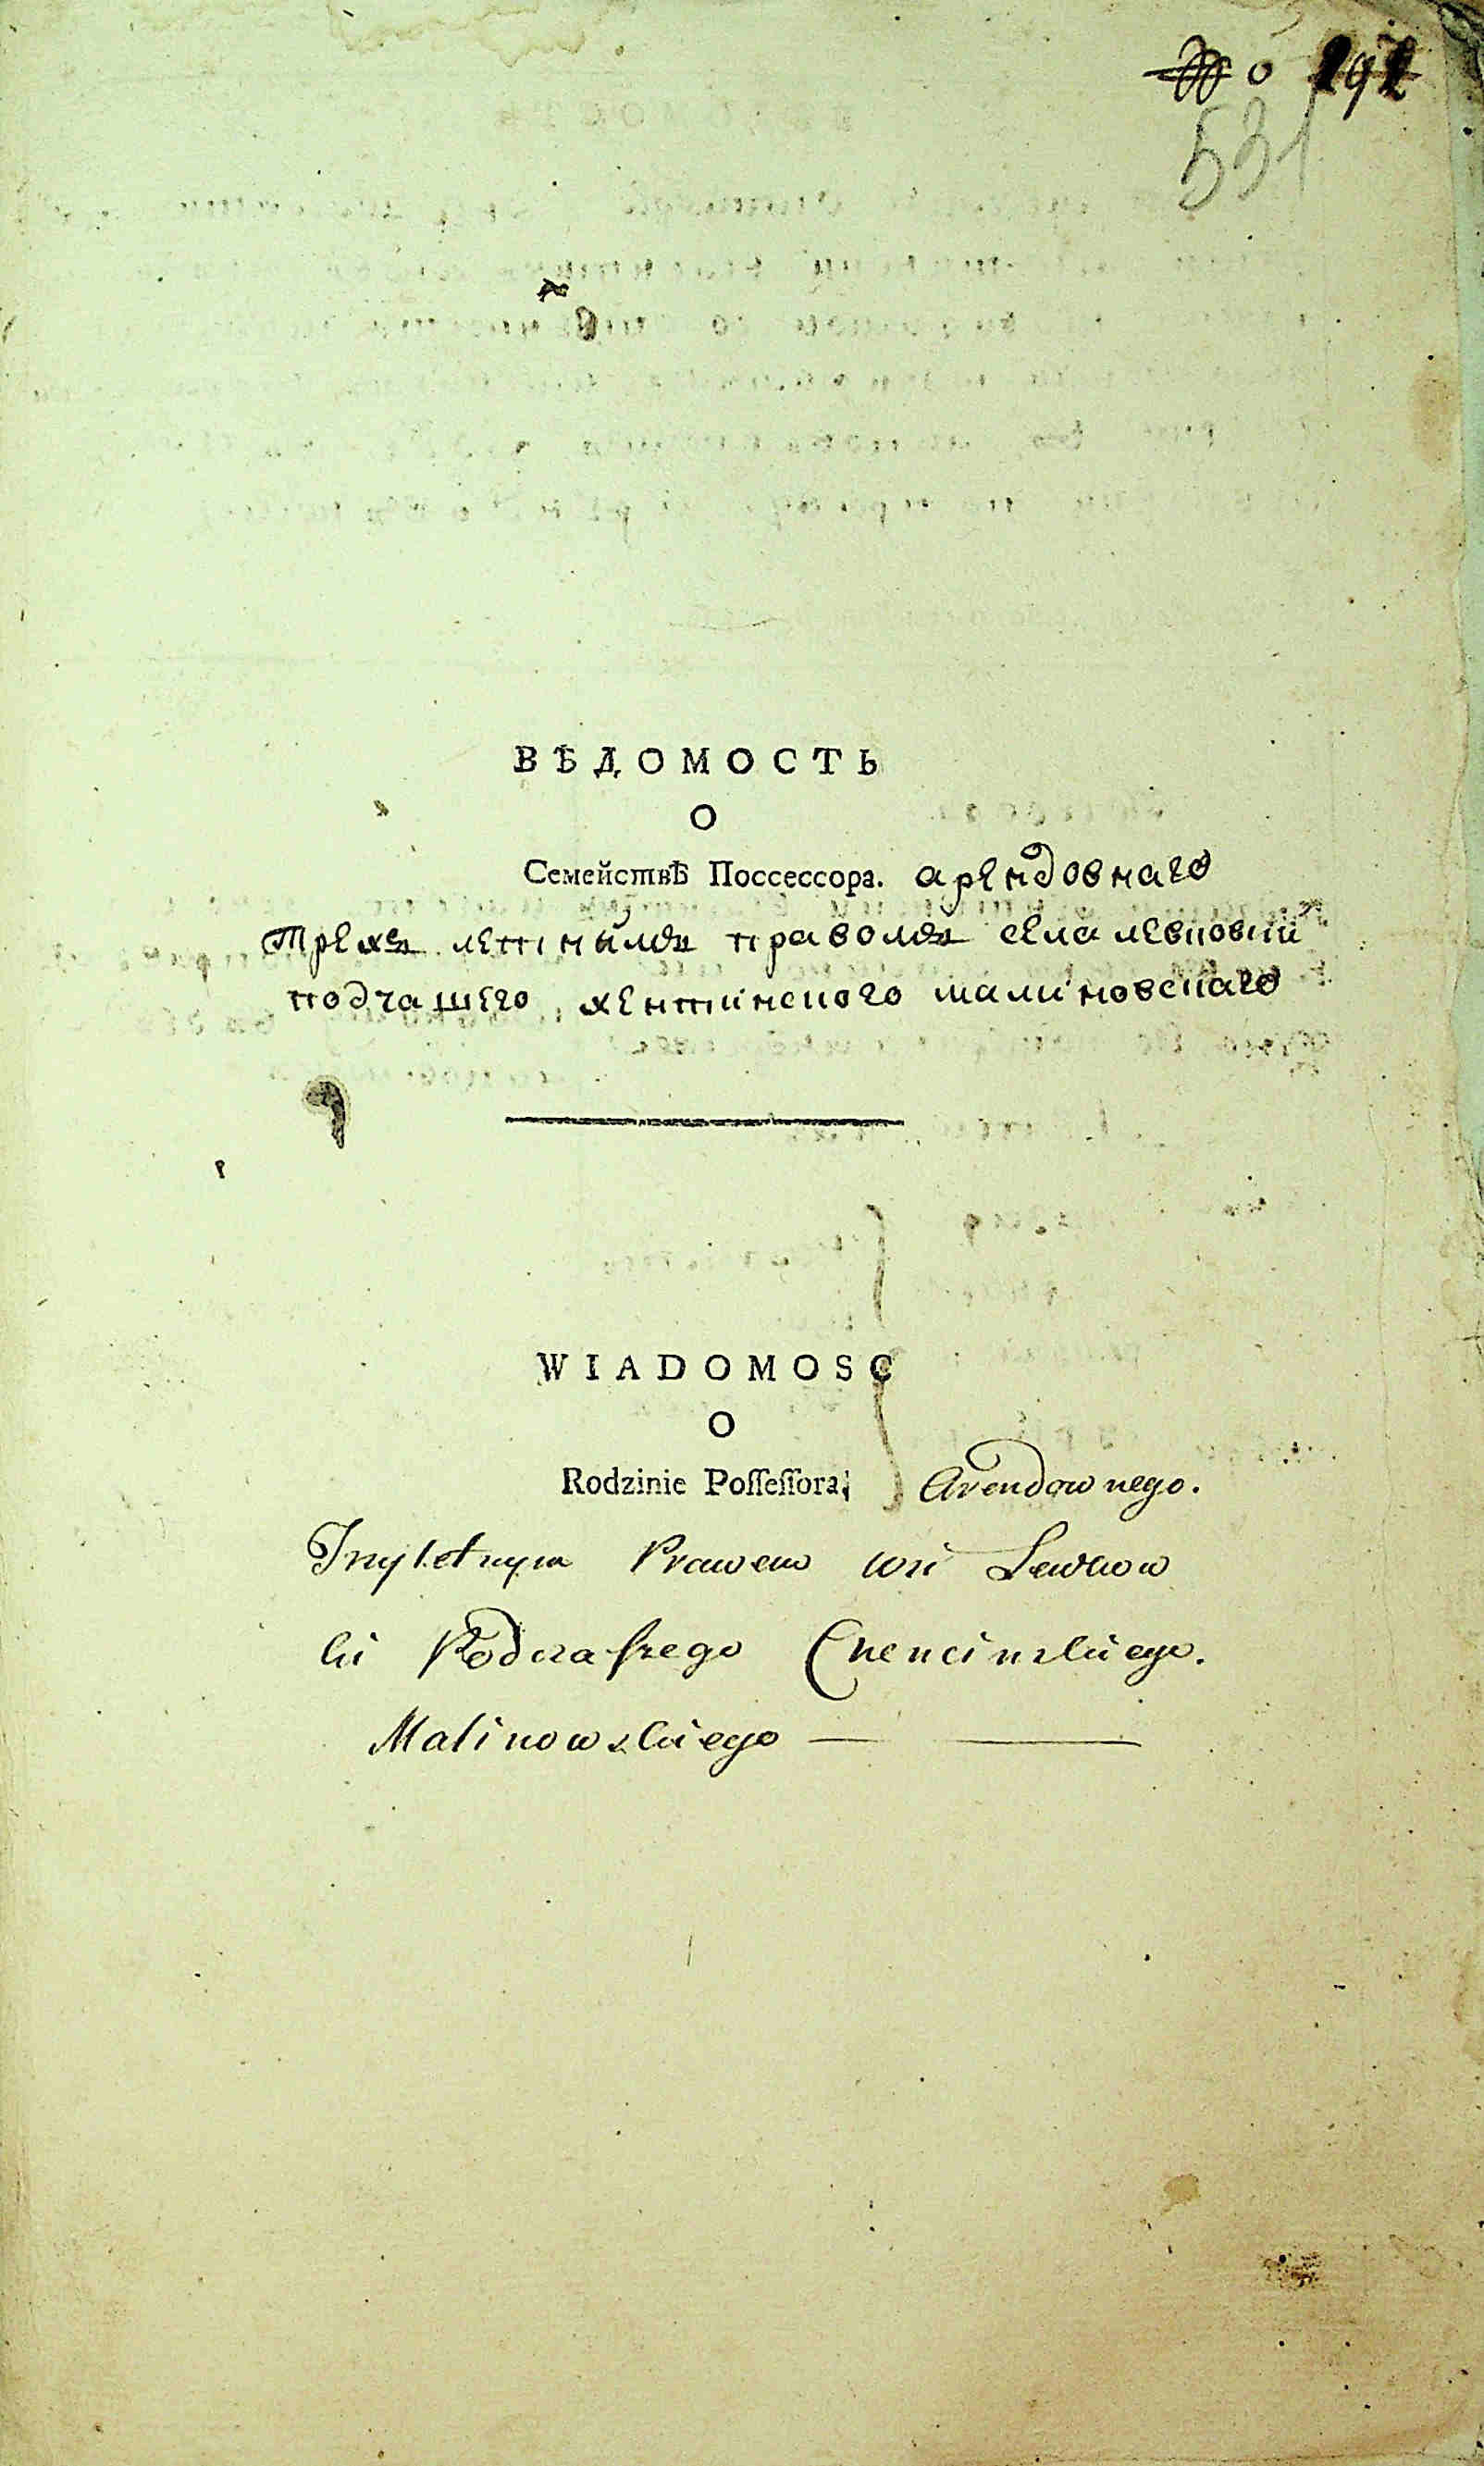 531
ВѢДОМОСТЬ
О
Семействѣ Поссессора. арендовнаго
трехъ летнымъ правомъ села левковки
подчашего хентинского малиновскаго
WIADOMOSC
O
Rodzinie Poſſeſſora; Arendownego.
Trzyletnym Prawem wsi Lewkow
ki Podczaſzego Chencinskiego.
Malinowskiego